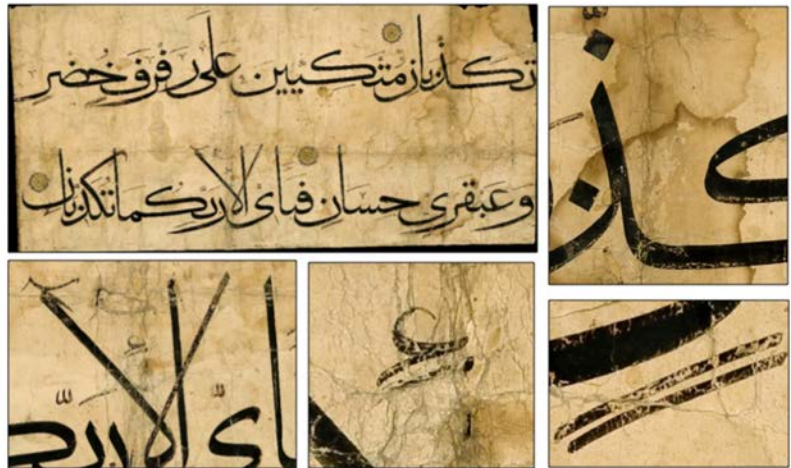 تكذبان متكيين على رفرف خضر
وعبقرى حسان فباى الاء ربكما تكذبان